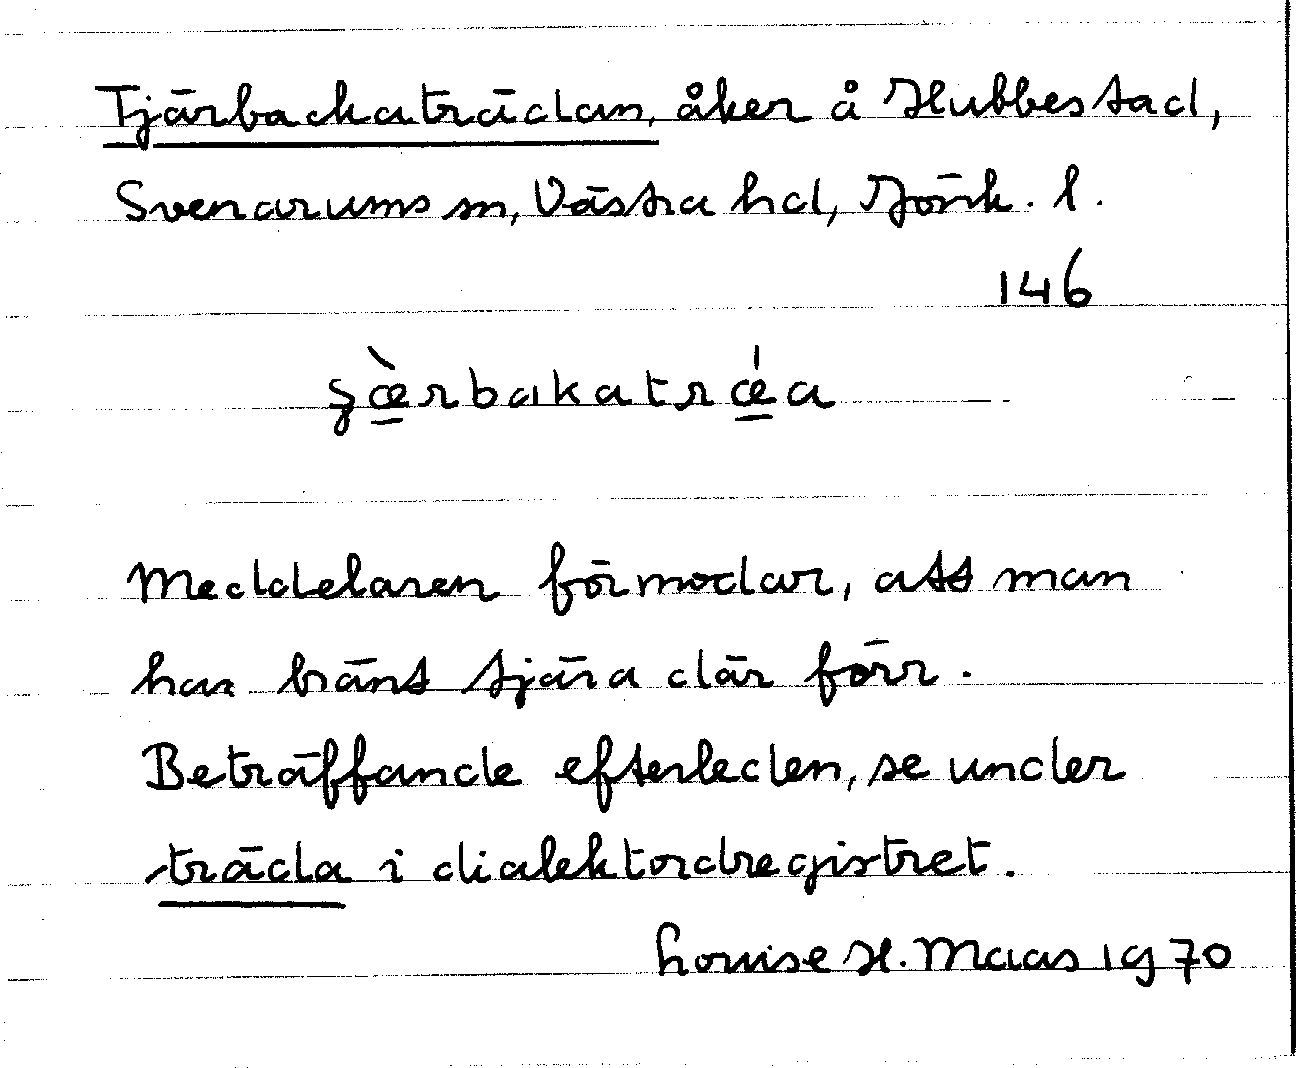 Tjärbackaträdan, åker å Hubbestad,
Svenarums sn, Västra hd, Jönk. l.
146
ʂæ̀rbakatrǽa
Meddelaren förmodar, att man
har bränt tjära där förr.
Beträffande efterleden, se under
träda i dialektordregistret.
Louise H. Maas 1970